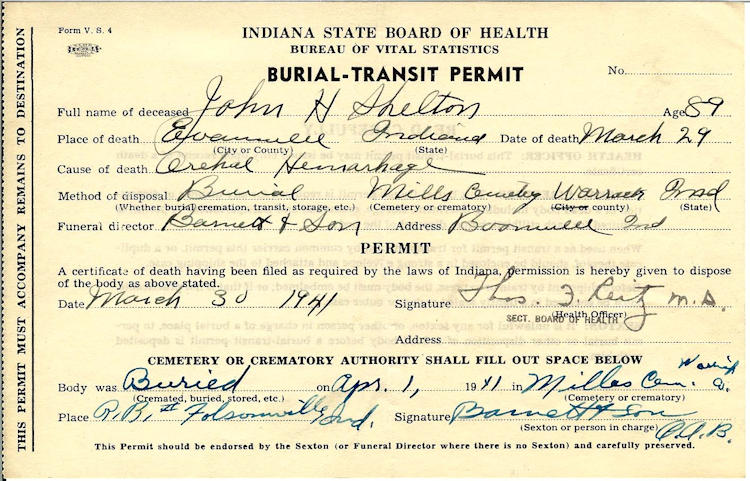 THIS PERMIT MUST ACCOMPANY REMAINS TO DESTINATION
Form V. S. 4
INDIANA STATE BOARD OF HEALTH
BUREAU OF VITAL STATISTICS
BURIAL-TRANSIT PERMIT
No.
Full name of deceased John H Shelton Age 89
Place of death Evansville Indiana Date of death March 29
(City or County) (State)
Cause of death Hemorhage
Method of disposal Burial Mills Cemetery Warrick Ind
(Whether burial, cremation, transit, storage, etc.) (Cemetery or crematory) (City or county) (State)
Funeral director Barnett & Son Address Boonville Ind
PERMIT
A certificate of death having been filed as required by the laws of Indiana, permission is hereby given to dispose
of the body as above stated.
Date March 30 1941 Signature Thos. J. Reitz M.D.
(Health Officer)
SECT. BOARD OF HEALTH
Address
CEMETERY OR CREMATORY AUTHORITY SHALL FILL OUT SPACE BELOW
Body was Buried on Apr. 1, 1941 in Milles Cem. Warrick
(Cremated, buried, stored, etc.) (Cemetery or crematory)
Place Folsomville Ind. Signature Barnett & Son
(Sexton or person in charge) C.A.B.
This Permit should be endorsed by the Sexton (or Funeral Director where there is no Sexton) and carefully preserved.